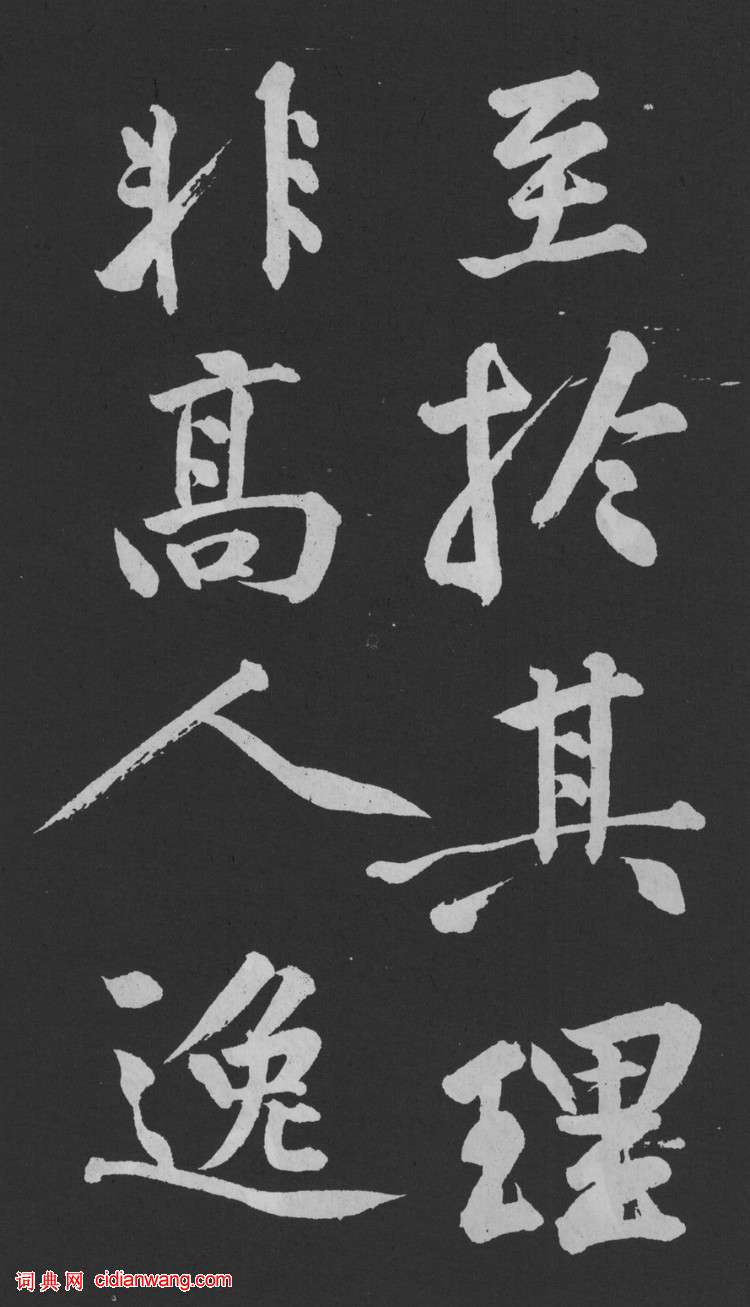 至於其理
非高人逸
词典网 cidianwang.com